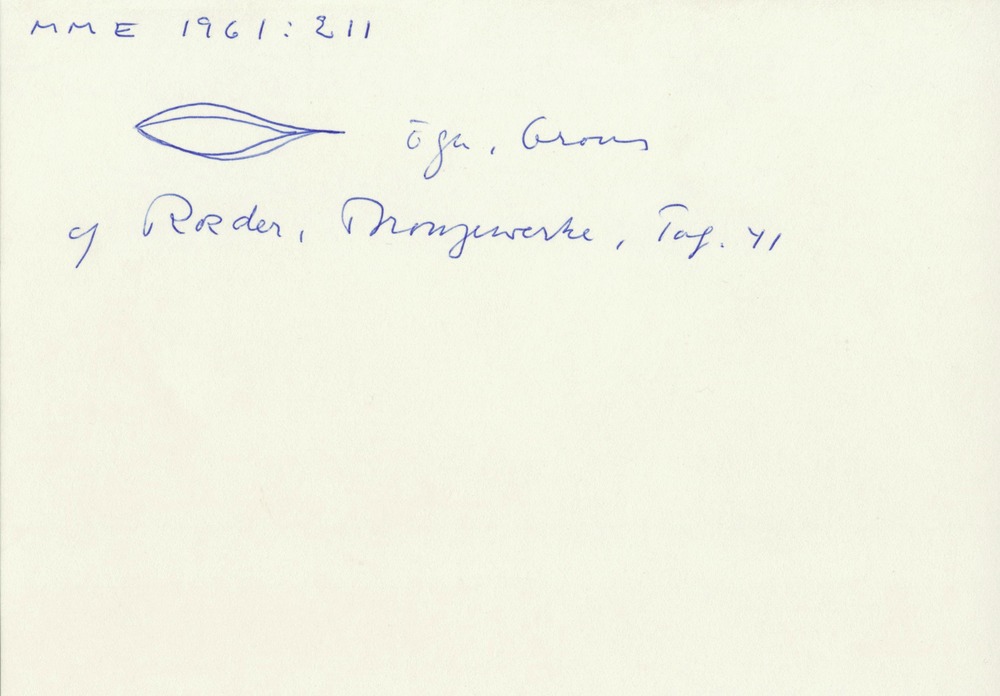 MME 1961:211
öga, brons
cf Roeder, Bronzewerke, Taf. 41